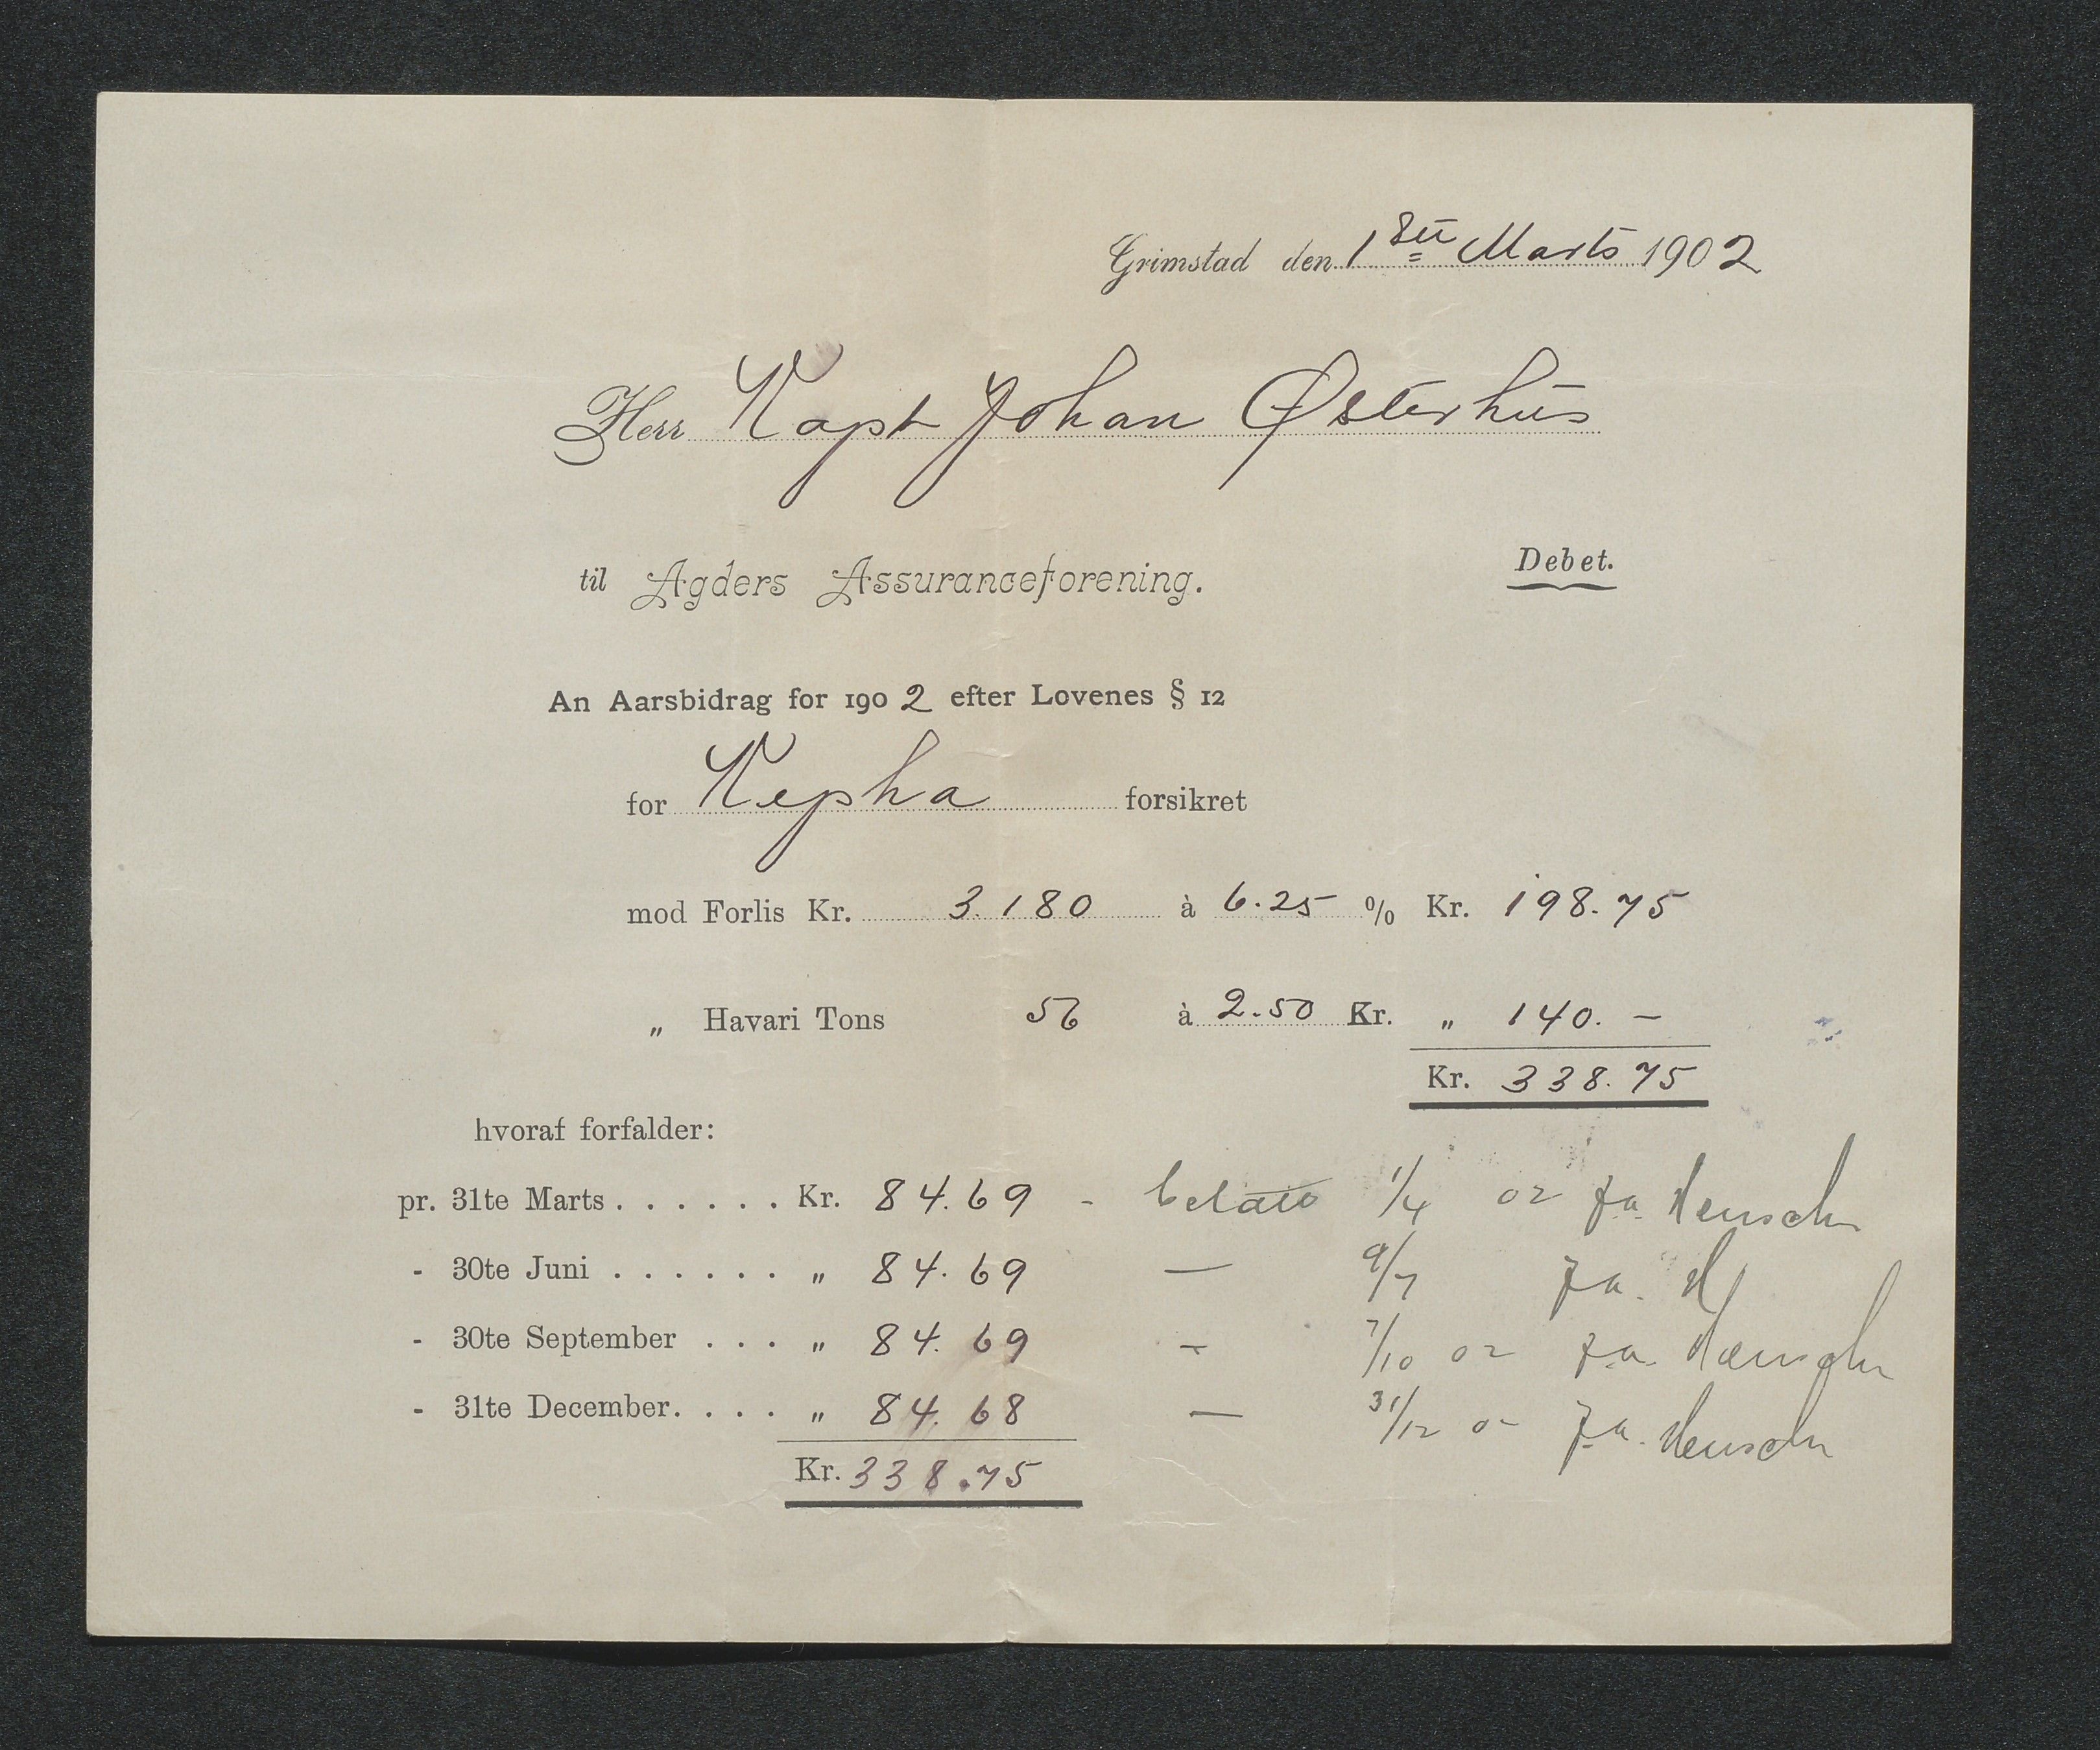 Grimstad den 1ste Marts 1902
Herr Kapt Johan Østerhus
til Agders Assuranceforening. Debet.
An Aarsbidrag for 1902 efter Lovenes § 12
for Kepha forsikret
mod Forlis Kr. 3.180 à 6.25 % Kr. 198.75
„ Havari Tons 56 à 2.50 Kr. „ 140. –
Kr. 338.75
hvoraf forfalder:
pr. 31te Marts . . . . . . Kr. 84.69 - betalt 1/4 02 fra
- 30te Juni . . . . . . „ 84.69 — 9/7
- 30te September . . . „ 84.69 - 7/10 02
- 31te December. . . . „ 84.68 — 31/12
Kr. 338.75